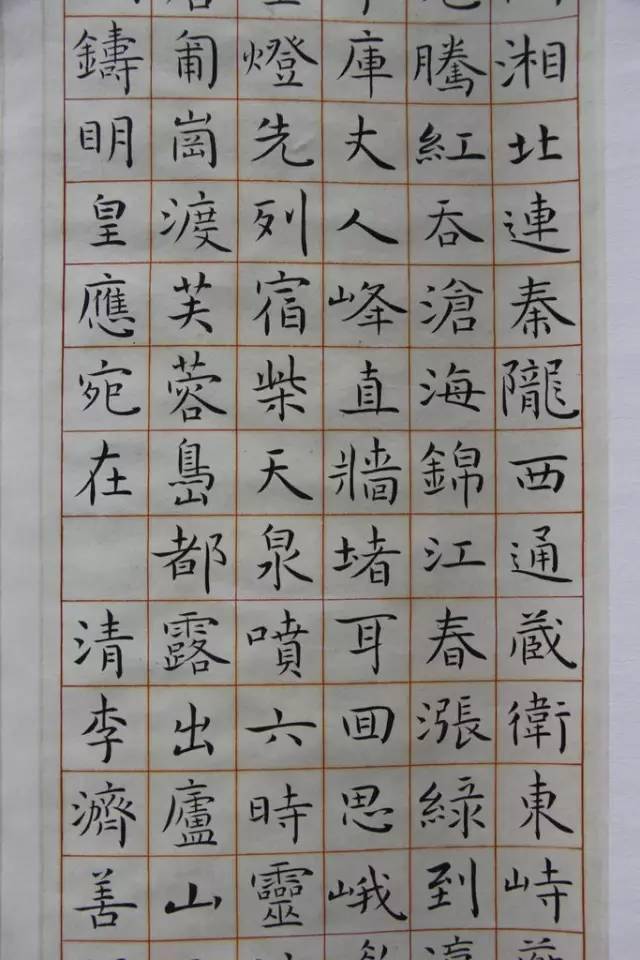 湘北連秦隴西通蔵衛東峙
騰紅吞滄海錦江春漲綠到
庫丈人峰直牆堵耳囬思峨
燈先列宿柴天泉噴六時靈
匍崗渡芙蓉島都露出廬山
鑄明皇應宛在 清李濟善